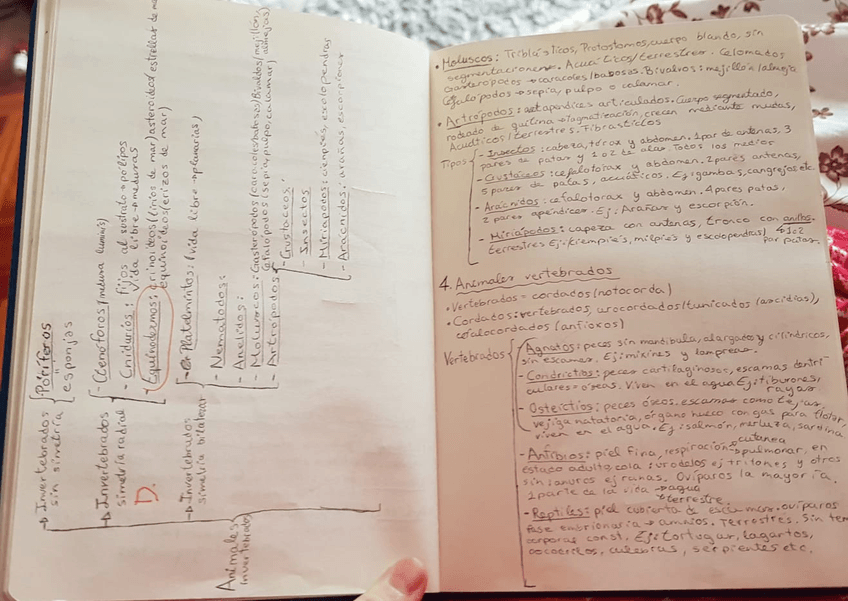 Animales
invertebrados
-> Invertebrados
sin simetría
Poríferos
esponjas
-> Invertebrados
simetría radial
D.
- Ctenóforos (medusa luminis)
- Cnidarios: fijos al sustrato -> pólipos
vida libre -> meduras
Equinodermos: crinoideos (lirios de mar) asteroideos (estrellas de mar
equinoideos (erizos de mar)
-> Invertebrados
simetría bilateral
- Platelmintos: (vida libre -> planarias)
- Nematodos:
- Anélidos:
- Moluscos: Gasterópodos (caracoles/babosas) Bivalvos (mejillón,
Cefalópodos (sepia, pulpo, calamar) almejas)
- Artrópodos
- Crustáceos:
- Insectos
- Miriápodos: ciempiés, escolopendras
- Arácnidos: arañas, escorpiones
• Moluscos: Triblásticos, Protostomos, cuerpo blando, sin
segmentaciones. Acuáticos/terrestres. Celomados
Gasterópodos -> caracoles/babosas. Bivalvos: mejillón/almeja
Cefalópodos -> sepia, pulpo o calamar.
• Artrópodos: apéndices articulados. Cuerpo segmentado,
rodeado de quitina -> tagmatización, crecen mediante mudas,
Acuáticos/terrestres.
Tipos
- Insectos: cabeza, tórax y abdomen. 1 par de antenas, 3
pares de patas y 1 o 2 de alas. Todos los medios
- Crustáceos: cefalotórax y abdomen. 2 pares antenas,
5 pares de patas, acuáticos. Ej: gambas, cangrejos etc.
- Arácnidos: cefalotórax y abdomen. 4 pares patas,
2 pares apéndices. Ej: Arañas y escorpión.
- Miriápodos: cabeza con antenas, tronco con anillos.
terrestres Ej: (ciempiés, milpiés y escolopendras) 1 o 2
par patas.
4. Animales vertebrados
• Vertebrados = cordados (notocorda)
• Cordados: vertebrados, urocordados/tunicados (ascidias),
cefalocordados (anfioxos)
Vertebrados
- Agnatos: peces sin mandíbula, alargados y cilíndricos,
sin escamas. Ej: mixines y lampreas.
- Condrictios: peces cartilaginosos, escamas dentri
culares = óseas. Viven en el agua Ej: tiburones,
rayas
- Osteictios: peces óseos, escamas como tejas,
vejiga natatoria, órgano hueco con gas para flotar,
viven en el agua. Ej: salmón, merluza, sardina
- Anfibios: piel fina, respiración cutanea
pulmonar, en
estado adulto, cola: urodelos ej tritones y otros
sin: anuros ej ranas. Ovíparos la mayoría.
1 parte de la vida -> agua
terrestre.
- Reptiles: piel cubierta de escamas. ovíparos
fase embrionaria -> amnios. Terrestres. Sin tem
corporal const. Ej: tortugas, lagartos,
cocodrilos, culebras, serpientes etc.